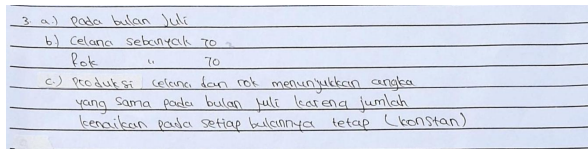 3. a.) Pada bulan Juli
b) Celana sebanyak 70
Rok " 70
c.) Produksi celana dan rok menunjukkan angka
yang sama pada bulan juli karena jumlah
kenaikan pada setiap bulannya tetap (konstan)